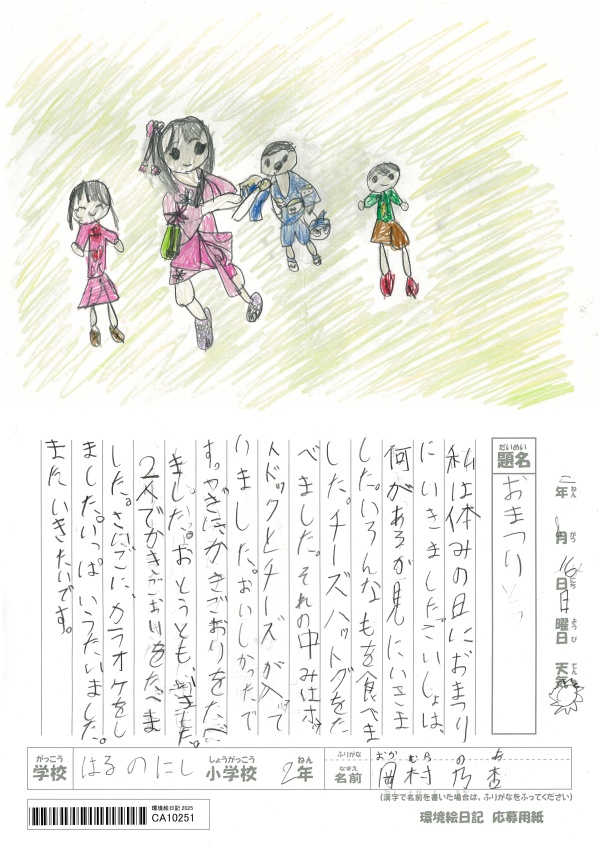 二年 月16日 日曜日 天気
ねん がつ にち ようび てんき
だいめい
題名
おまつり
私は休みの日におまつり
にいきました。ごいしょは、
何があるか見にいきま
した。いろんなもを食べま
した。チーズハットグをた
べました。それの中みはホッ
トドックとチーズが入って
いました。おいしかったで
す。やぎにかきごおりをたべ
ました。おとうとも、
2人でかきごおりをたべま
した。さいごに、カラオケをし
ました。いっぱいうたいました。
またいきたいです。
がっこう
学校 はるのにし しょうがっこう 小学校 2年 ねん
ふりがな おか むら の あ
なまえ 名前 岡村 乃杏
(漢字で名前を書いた場合は、ふりがなをふってください)
環境絵日記 2025
CA10251
環境絵日記 応募用紙